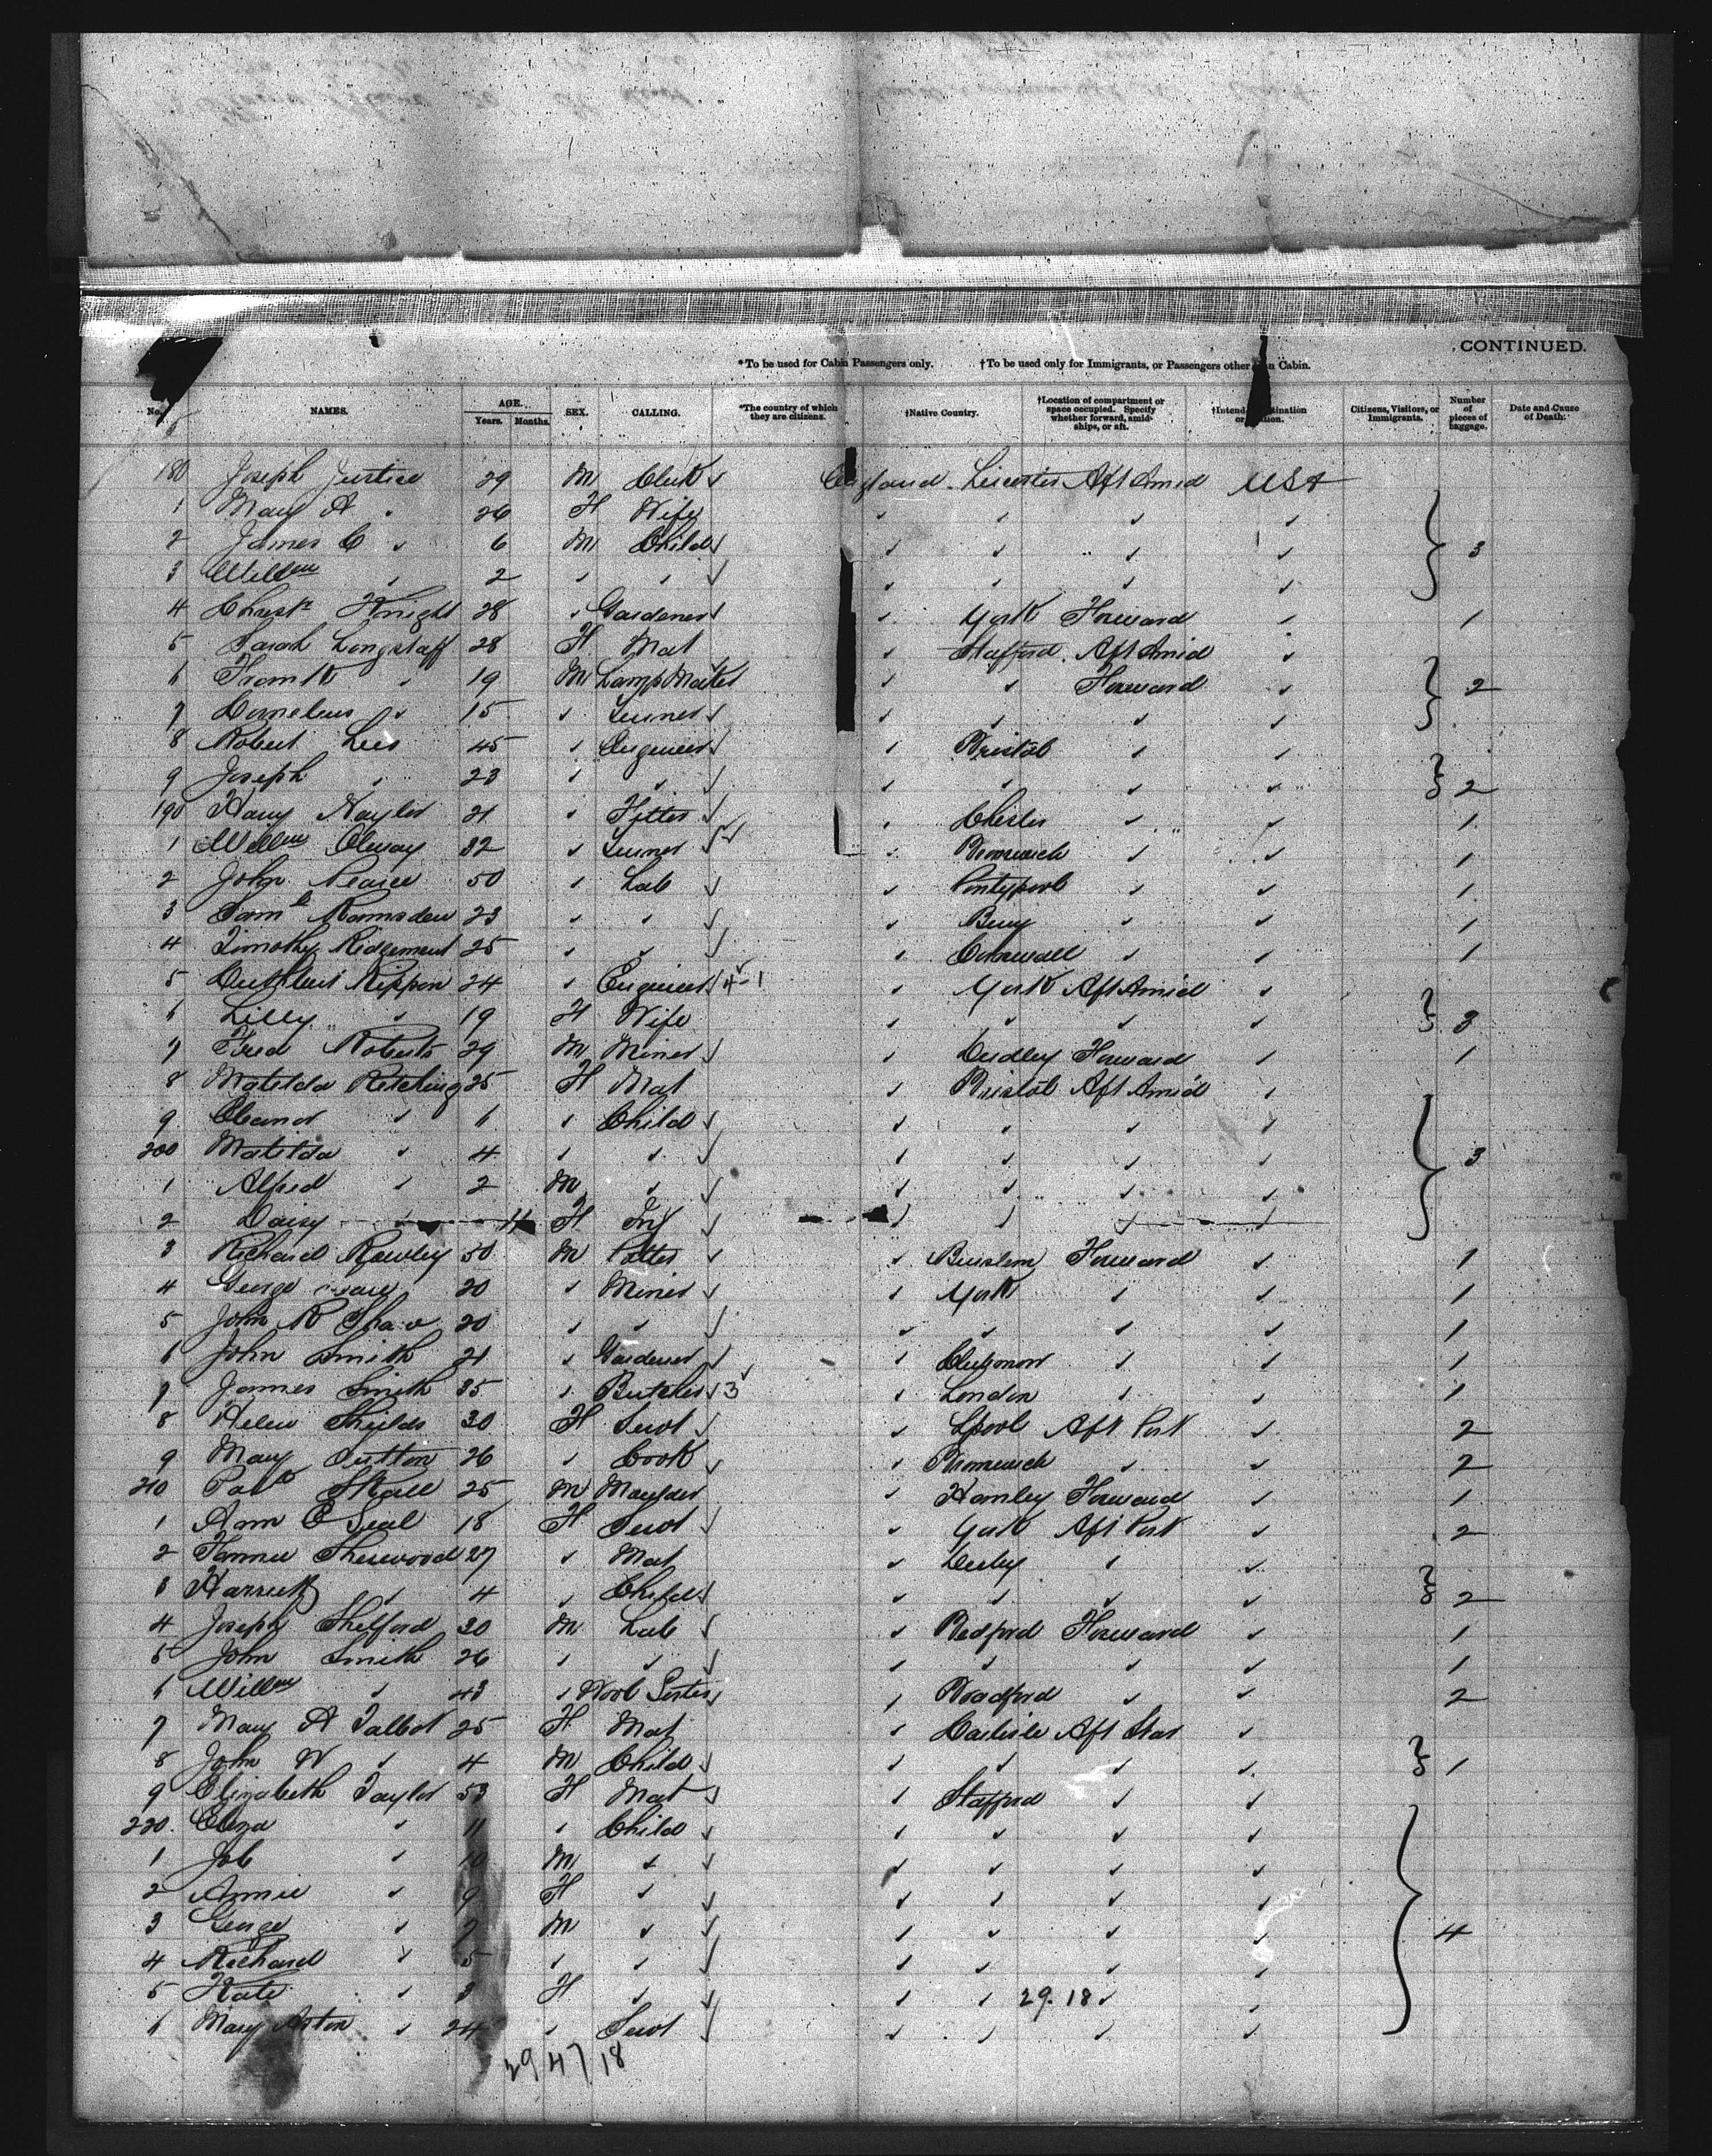 CONTINUED.
*To be used for Cabin Passengers only. †To be used only for Immigrants, or Passengers other Cabin.
No. NAMES. AGE. Years. Months. SEX. CALLING. *The country of which they are citizens. †Native Country. †Location of compartment or space occupied. Specify whether forward, amidships, or aft. Citizens, Visitors, or Immigrants. Number of pieces of baggage. Date and Cause of Death:
180 Joseph Justice 29 M Clerk ✓ England Leicester Aft Amid USA
1 Mary A " 26 F Wife ✓ ✓ ✓ ✓
2 James C ✓ 6 M Child ✓ ✓ ✓ ✓ ✓ 3
3 Willm ✓ 2 ✓ ✓ ✓ ✓ ✓ ✓ ✓
4 Christr Knight 28 ✓ Gardener ✓ ✓ York Forward ✓ 1
5 Sarah Longstaff 28 F Mat ✓ Stafford Aft Amid ✓
6 Frank ✓ 19 M Lamp Maker ✓ ✓ Forward ✓ 2
7 Cornelius ✓ 15 ✓ Turner ✓ ✓ ✓ ✓ ✓
8 Robert Lees 45 ✓ Engineer ✓ ✓ Bristol ✓ ✓
9 Joseph ✓ 23 ✓ ✓ ✓ ✓ ✓ ✓ ✓ 2
190 Harry Naylor 21 ✓ Fitter ✓ ✓ Chester ✓ ✓ 1
1 Willm 32 ✓ Turner ✓ ✓ ✓ ✓ 1
2 John Pearce 50 ✓ Lab ✓ ✓ Pontypool ✓ ✓ 1
3 Saml Ramsden 23 ✓ ✓ ✓ ✓ Bury ✓ ✓ 1
4 Timothy Ridgement 25 ✓ ✓ ✓ ✓ Cornwall ✓ ✓ 1
5 Cuthbert Rippon 24 ✓ Engineer 4-1 ✓ York Aft Amid ✓
6 Lilly ✓ 19 F Wife ✓ ✓ ✓ ✓ 3
7 Fred Roberts 29 M Miner ✓ ✓ Dudley Forward ✓ 1
8 Matilda Ritching 25 F Mat ✓ Bristol Aft Amid ✓
9 Eleanor ✓ 6 ✓ Child ✓ ✓ ✓ ✓ ✓
200 Matilda ✓ 4 ✓ ✓ ✓ ✓ ✓ ✓ ✓ 3
1 Alfred ✓ 2 M ✓ ✓ ✓ ✓ ✓ ✓
2 Daisy ✓ 11 F Inf ✓ ✓ ✓ ✓ ✓
3 Richard Rowley 50 M Potter ✓ ✓ Burslem Forward ✓ 1
4 George 20 ✓ Miner ✓ ✓ York ✓ ✓ 1
5 John R Shaw 20 ✓ ✓ ✓ ✓ ✓ ✓ ✓ 1
6 John Smith 21 ✓ Gardener ✓ ✓ ✓ ✓ 1
7 James Smith 35 ✓ Butcher ✓ 3 ✓ London ✓ ✓ 1
8 Helen Shields 30 F Servt ✓ ✓ Lpool Aft Port ✓ 2
9 Mary Sutton 26 ✓ Cook ✓ ✓ ✓ ✓ 2
210 Patk Skall 25 M Moulder ✓ Hanley Forward ✓ 1
1 Ann E Seal 18 F Servt ✓ ✓ York Aft Port ✓ 2
2 Fannie Sherwood 27 ✓ Mat ✓ Derby ✓ ✓
3 Harriett ✓ 4 ✓ Child ✓ ✓ ✓ ✓ ✓ 2
4 Joseph Shelford 30 M Lab ✓ ✓ Bedford Forward ✓ 1
5 John Smith 26 ✓ ✓ ✓ ✓ ✓ ✓ ✓ 1
6 Willm ✓ 43 ✓ Wool Sorter ✓ ✓ Bradford ✓ ✓ 2
7 Mary A Talbot 25 F Mat ✓ Carlisle Aft Star ✓
8 John W ✓ 4 M Child ✓ ✓ ✓ ✓ ✓ 1
9 Elizabeth Taylor 53 F Mat ✓ ✓ Stafford ✓ ✓
220. Eliza ✓ 11 ✓ Child ✓ ✓ ✓ ✓ ✓
1 Job ✓ 10 M ✓ ✓ ✓ ✓ ✓ ✓
2 Annie ✓ 9 F ✓ ✓ ✓ ✓ ✓ ✓
3 George ✓ 7 M ✓ ✓ ✓ ✓ ✓ ✓ 4
4 Richard ✓ 5 ✓ ✓ ✓ ✓ ✓ ✓ ✓
5 Kate ✓ 3 F ✓ ✓ ✓ ✓ 29.18 ✓ ✓
6 Mary Aston ✓ 24 ✓ Servt ✓ ✓ ✓ ✓ ✓
29 47 18